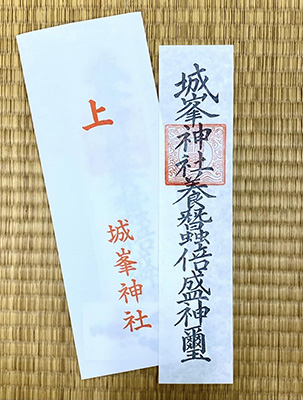 上
城峯神社
城峯神社養蠶倍盛神璽